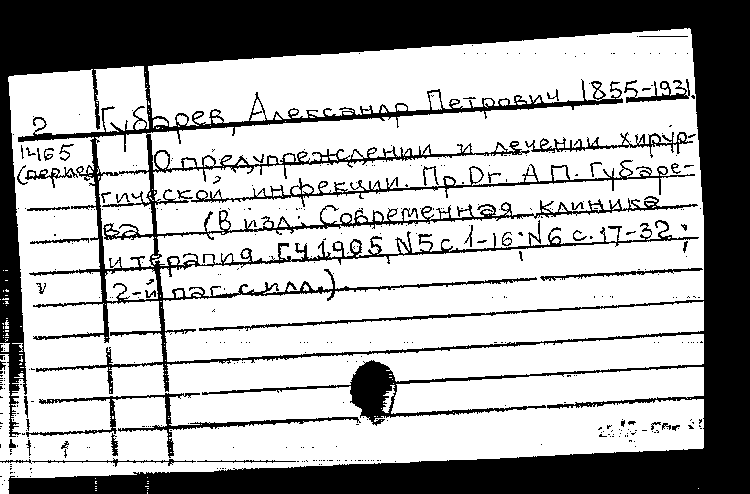 2 Губарев, Александр Петрович, 1855-1931.
14165 О предупреждении и лечении хирур-
(период) гической инфекции. Пр. Dr. А.П. Губаре-
ва (В изд.: Современная клиника
и терапия. Г.4 1905 N5 с. 1-16; N6 с. 17-32;
v 2-й паг. с илл.)
1